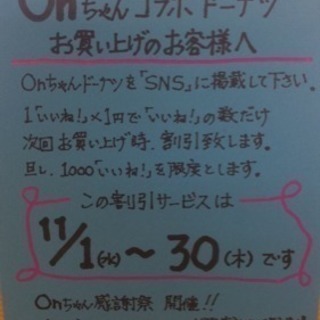 Onちゃんコラボドーナツ
お買い上げのお客様へ
Onちゃんドーナツを「SNS」に掲載して下さい。
1「いいね!」×1円で「いいね!」の数だけ
次回お買い上げ時、割引致します。
但し、1000「いいね!」を限度とします。
この割引サービスは
11/1(水)〜30(木)です
Onちゃん感謝祭 開催!!